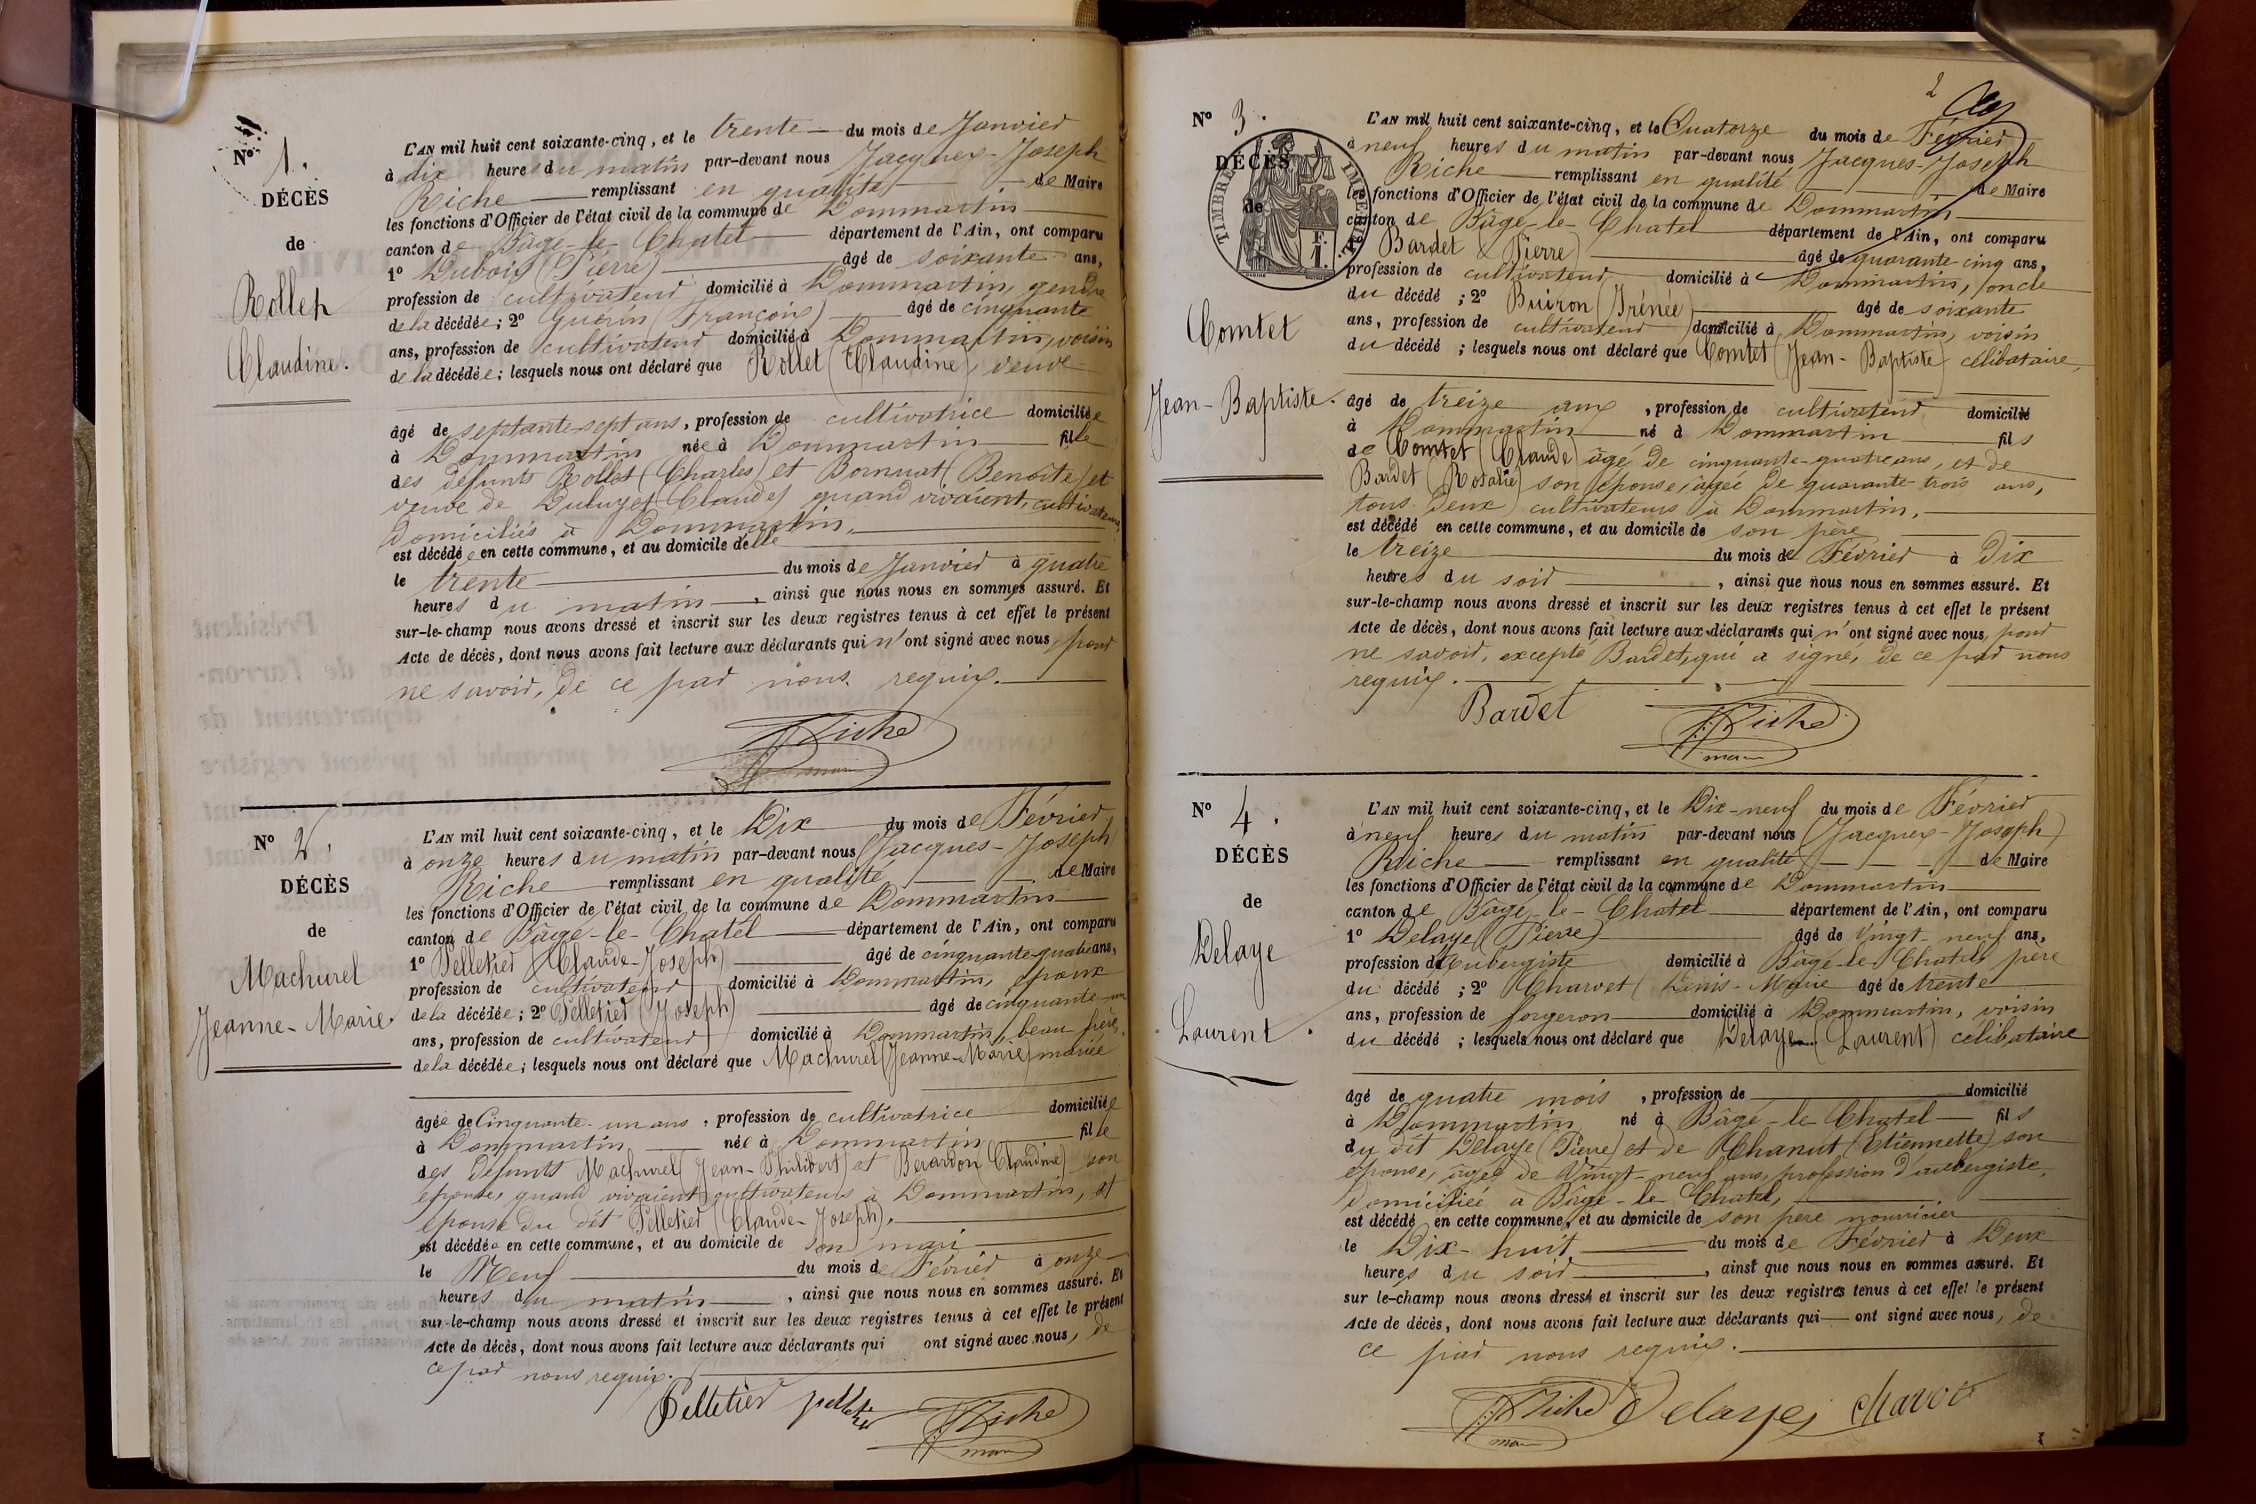 Nº 1.
DÉCÈS
de
Rollet
Claudine.
L'AN mil huit cent soixante-cinq, et le trente du mois de Janvier
à dix heures du matin par-devant nous Jacques-Joseph
Riche remplissant en qualité de Maire
les fonctions d'Officier de l'état civil de la commune de Dommartin
canton de Bâgé-le-Chatel département de l'Ain, ont comparu
1º Dubois (Pierre) âgé de soixante ans,
profession de cultivateur domicilié à Dommartin, gendre
de la décédée; 2º Guérin (François) âgé de cinquante
ans, profession de cultivateur domicilié à Dommartin, voisin
de la décédée; lesquels nous ont déclaré que Rollet (Claudine), veuve
âgé de septante sept ans, profession de cultivatrice domiciliée
à Dommartin née à Dommartin fille
des défunts Rollet (Charles) et Bornuat (Benoite) et
veuve de Claude) quand vivaient, cultivateurs
domiciliés à Dommartin.
est décédée en cette commune, et au domicile d'elle
le trente du mois de Janvier à quatre
heures du matin, ainsi que nous nous en sommes assuré. Et
sur-le-champ nous avons dressé et inscrit sur les deux registres tenus à cet effet le présent
Acte de décès, dont nous avons fait lecture aux déclarants qui n'ont signé avec nous, pour
ne savoir, de ce par nous requis.
Riche
Nº 2.
DÉCÈS
de
Machurel
Jeanne-Marie.
L'AN mil huit cent soixante-cinq, et le Dix du mois de Février,
à onze heures du matin par-devant nous Jacques-Joseph
Riche remplissant en qualité de Maire
les fonctions d'Officier de l'état civil de la commune de Dommartin
canton de Bâgé-le-Chatel département de l'Ain, ont comparu
1º Pelletier (Claude-Joseph) âgé de cinquante-quatre ans,
profession de cultivateur domicilié à Dommartin, époux
de la décédée; 2º Pelletier (Joseph) âgé de cinquante-un
ans, profession de cultivateur domicilié à Dommartin, beau frère,
de la décédée; lesquels nous ont déclaré que Machurel (Jeanne-Marie) mariée
âgée de Cinquante-un ans, profession de cultivatrice domiciliée
à Dommartin née à Dommartin fille
des défunts Machurel (Jean-Philibert) et Berardon (Claudine) son
épouse, quand vivaient cultivateurs à Dommartin, et
épouse du dit Pelletier (Claude-Joseph).
est décédée en cette commune, et au domicile de son mari
le Neuf du mois de Février à onze
heures du matin, ainsi que nous nous en sommes assuré. Et
sur-le-champ nous avons dressé et inscrit sur les deux registres tenus à cet effet le présent
Acte de décès, dont nous avons fait lecture aux déclarants qui ont signé avec nous, de
ce par nous requis.
Pelletier pelletier Riche
maire
2
Nº 3.
DÉCÈS
de
TIMBRE IMPÉRIAL
1 F.
Comtet
Jean-Baptiste.
L'AN mil huit cent soixante-cinq, et le Quatorze du mois de Février
à neuf heures du matin par-devant nous Jacques-Joseph
Riche remplissant en qualité de Maire
les fonctions d'Officier de l'état civil de la commune de Dommartin
canton de Bâgé-le-Chatel département de l'Ain, ont comparu
1º Bardet (Pierre) âgé de quarante cinq ans,
profession de cultivateur domicilié à Dommartin, oncle
du décédé; 2º Buiron (Irénée) âgé de soixante
ans, profession de cultivateur domicilié à Dommartin, voisin
du décédé; lesquels nous ont déclaré que Comtet (Jean-Baptiste) célibataire,
âgé de treize ans, profession de cultivateur domicilié
à Dommartin né à Dommartin fils
de Comtet (Claude) âgé de cinquante-quatre ans, et de
Bardet (Rosalie) son épouse, âgée de quarante-trois ans,
tous deux cultivateurs à Dommartin.
est décédé en cette commune, et au domicile de son père
le treize du mois de Février à Dix
heures du soir, ainsi que nous nous en sommes assuré. Et
sur-le-champ nous avons dressé et inscrit sur les deux registres tenus à cet effet le présent
Acte de décès, dont nous avons fait lecture aux déclarants qui n'ont signé avec nous, pour
ne savoir, excepté Bardet, qui a signé, de ce par nous
requis.
Bardet Riche
maire
Nº 4.
DÉCÈS
de
Delaye
Laurent.
L'AN mil huit cent soixante-cinq, et le Dix-neuf du mois de Février
à neuf heures du matin par-devant nous (Jacques-Joseph)
Riche remplissant en qualité de Maire
les fonctions d'Officier de l'état civil de la commune de Dommartin
canton de Bâgé-le-Chatel département de l'Ain, ont comparu
1º Delaye (Pierre) âgé de Vingt-neuf ans,
profession d'Aubergiste domicilié à Bâgé-le-Chatel, père
du décédé; 2º Charvet (Denis-Marie âgé de trente
ans, profession de forgeron domicilié à Dommartin, voisin
du décédé; lesquels nous ont déclaré que Delaye (Laurent) célibataire
âgé de quatre mois, profession de domicilié
à Dommartin né à Bâgé-le-Chatel fils
du dit Delaye (Pierre) et de Chanut (Etiennette) son
épouse, âgée de Vingt-neuf ans, profession d'aubergiste,
domiciliée à Bâgé-le-Chatel,
est décédé en cette commune, et au domicile de son père nourricier
le Dix-huit du mois de Février à Deux
heures du soir, ainsi que nous nous en sommes assuré. Et
sur le-champ nous avons dressé et inscrit sur les deux registres tenus à cet effet le présent
Acte de décès, dont nous avons fait lecture aux déclarants qui ont signé avec nous, de
ce par nous requis.
Riche Delaye
maire